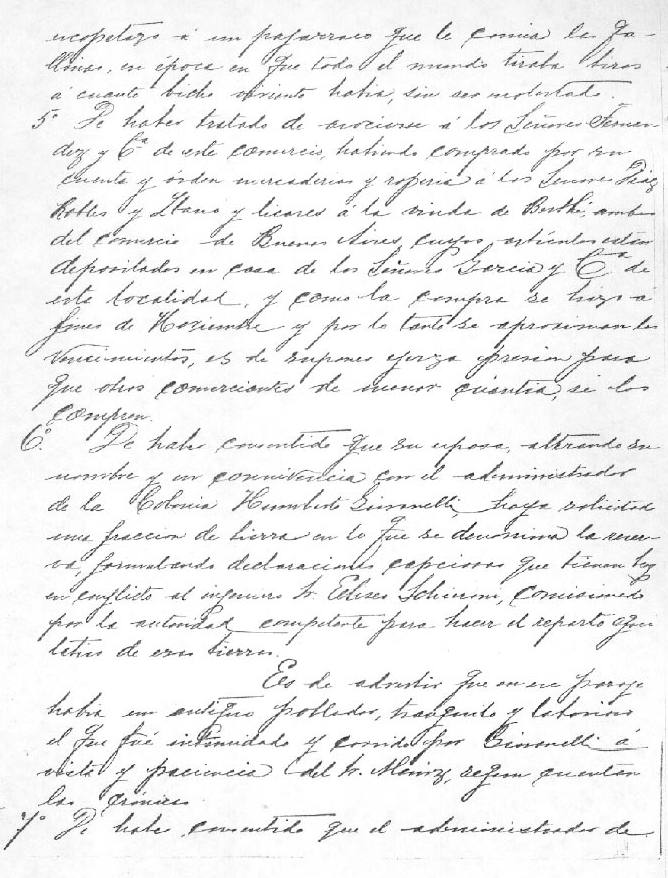 escopetazo á un pajarraco que le comia las ga-
llinas, en época en que todo el mundo tiraba tiros
á cuanto bicho viviente habia, sin ser molestado.
5º De haber tratado de asociarse á los Señores Fernan-
dez y Cª de este comercio, habiendo comprado por su
cuenta y órden mercaderias y roperia á los Señores Diaz
Robles y Llano y licores á la viuda de Berthé, ambos
del comercio de Buenos Aires, cuyos articulos estan
depositados en casa de los Señores Garcia y Cª de
esta localidad, y como la compra se hizo a
fines de Noviembre y por lo tanto se aproximan los
vencimientos, es de suponer ejerza presion para
que otros comerciantes de menor cuantia, se los
compren.
6º. De haber consentido que su esposa, alterando su
nombre y en connivencia con el administrador
de la Colonia Humberto Gimonelli, haya solicitado
una fraccion de tierra en lo que se denomina la reser-
va, formulando declaraciones capciosas que tienen hoy
en conflicto al ingeniero Sr. Eliseo Schieroni, comisionado
por la autoridad competente para hacer el reparto equi
tativo de esas tierras.
Es de advertir que en ese paraje
habia un antiguo poblador, tranquilo y laborioso
el que fué intimidado y corrido por Gimonelli á
vista y paciencia del Sr. Muniz, segun cuentan
las crónicas.
7º De haber consentido que el administrador de